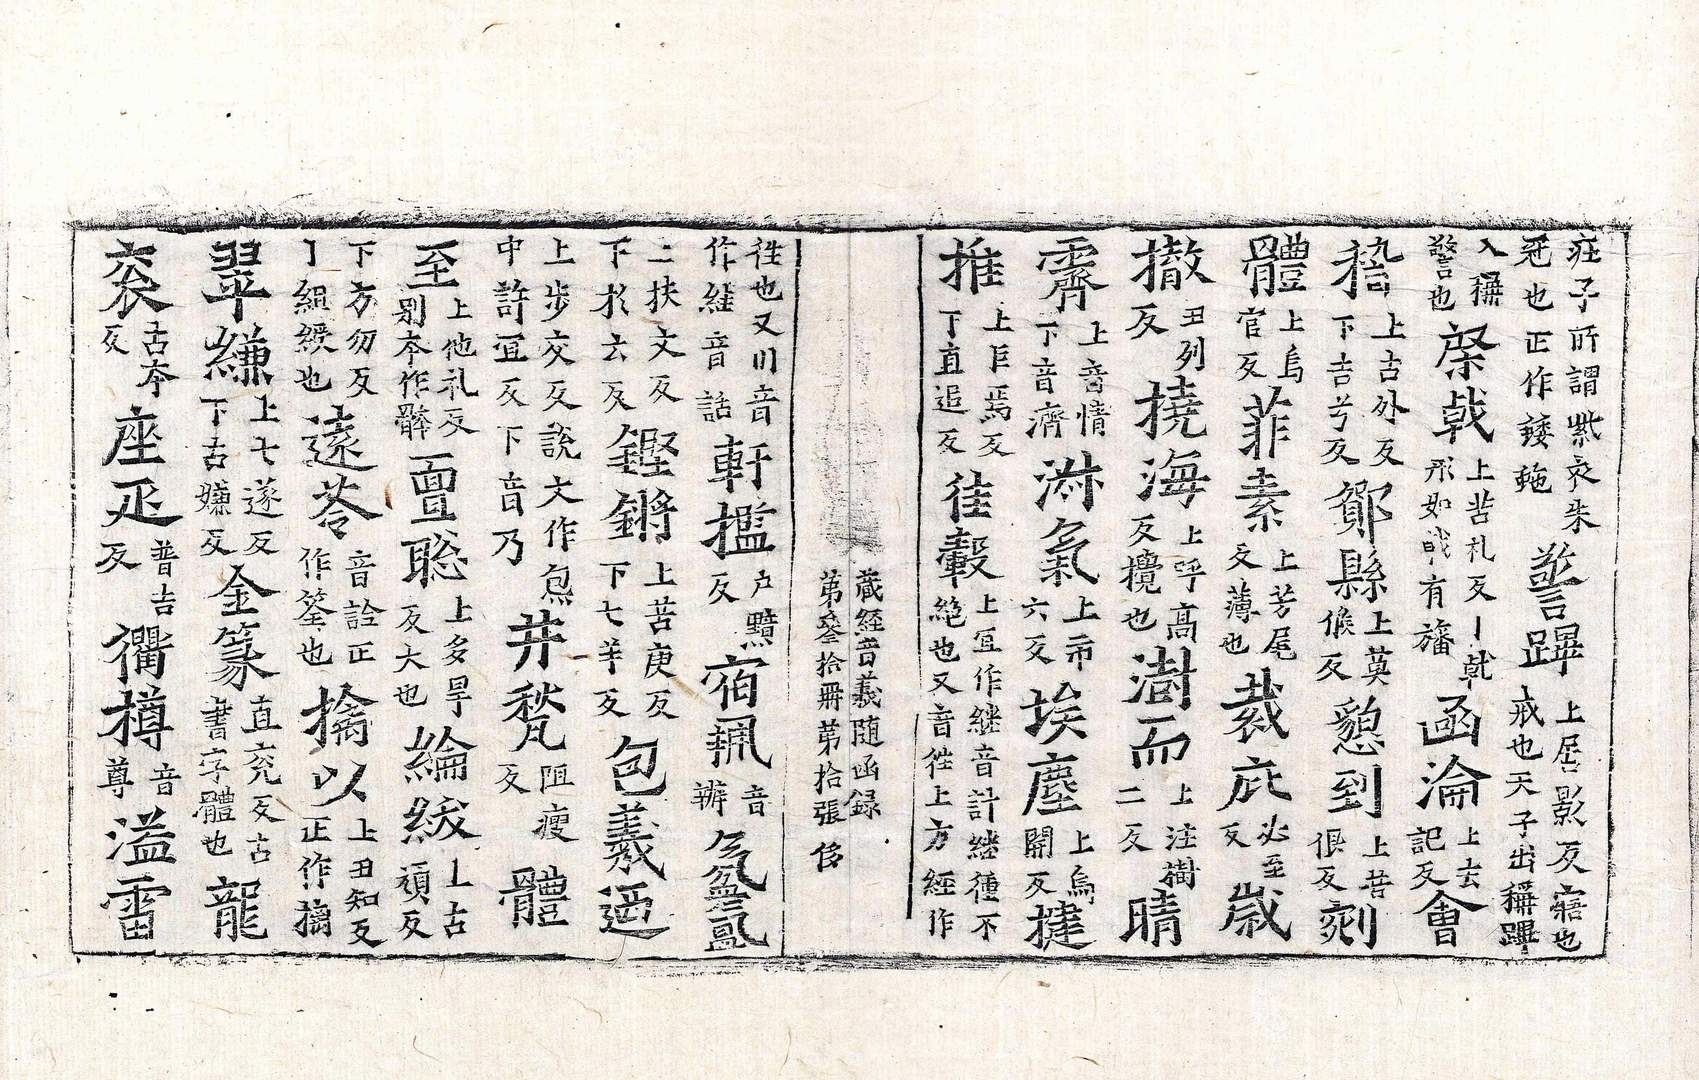 莊子所謂紫衣朱
冕也正作諉䩊警蹕上居影反寤也
戒也天子出稱蹕
入稱
警也棨戟上苦礼反丨戟
形如戟有旛函淪上去
記反會
稽上古外反
下吉兮反鄮縣上莫
候反懇到上苦
很反剡
體上烏
官反菲素上芳尾
反薄也裁庇必至
反歲
撤丑列
反撓海上呼高
反攪也澍而上注澍
二反晴
霽上音情
下音濟淋氣上市
六反埃塵上烏
開反揵
推上乍焉反
丁直追反徍轂上宜作継音計継種不
絶也又音徃上方經作
藏經音義随函録
第叁拾冊第拾張
徃也又川音
作継音話軒檻户黤
反宿珮音
辦氛氳
二扶文反
下於云反鏗鏘上苦庚反
下七羊反包義迺
上步交反說文作㶿
中許宜反下音乃井甃阻瘦
反體
至上他礼反
別夲作髀亶聡上多旱
反大也綸綍上古
頑反
下方勿反
丨組綬也逺荃音詮正
作筌也擒以上丑知反
正作摛
翠縑上七遂反
下古嫌反金篆直兖反古
書字體也龍
衮古夲
反座叵普吉
反衢樽音
尊溢雷